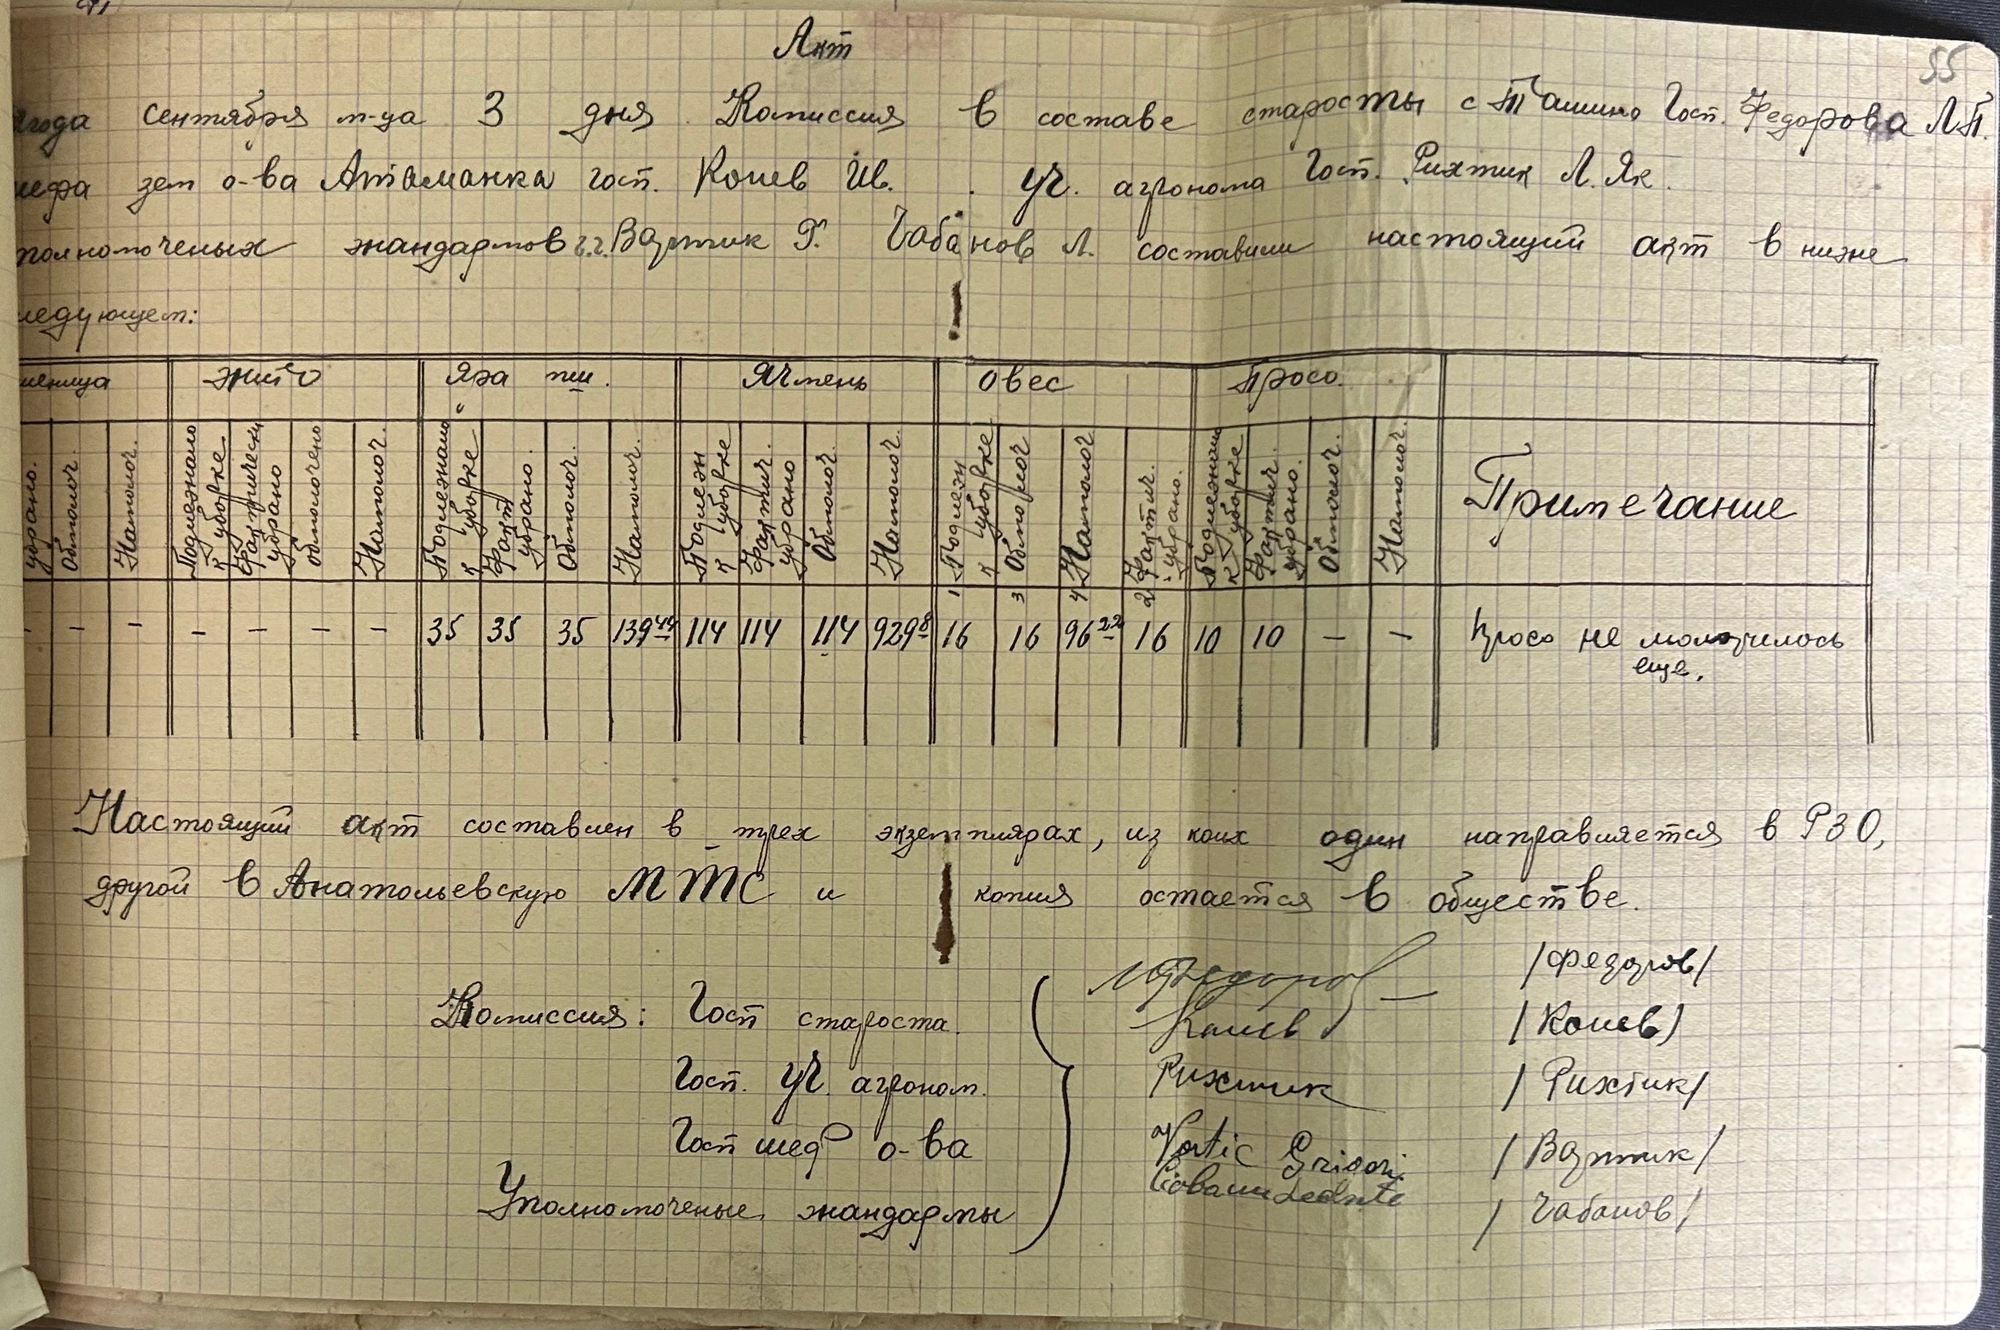 55
Акт
года сентября м-ца 3 дня. Комиссия в составе старосты с Ташино Госп. Федорова Л.П.
шефа зем о-ва Атаманка госп. Кошев Ив. . уч. агронома Госп. Рихтик Л. Як.
полномоченых жандармов г.г. Вартик Г. Чабанов Л. составили настоящий акт в ниже
ледующем:
шеница жито Яра пш. Ячмень Овес Просо. Примечание
убрано. Обмолоч. Намолоч. Подлежало к уборке Фактически убрано Обмолочено Намолоч. Подлежало к уборке Факт убрано. Обмолоч. Намолоч. Подлеж к уборке Фактич. убрано Обмолоч. Намолоч. 1 Подлеж к уборке 3 Обмолоч 4 Намолоч 2 Фактич. убрано. Подлежало к уборке Фактич. убрано. Обмолоч. Намолоч.
– – – – – – – 35 35 35 139 44 114 114 114 929 8 16 16 96 22 16 10 10 – – просо не молотилось
еще.
Настоящий акт составлен в трех экземплярах, из коих один направляется в РЗО,
другой в Анатольевскую МТС и копия остается в обществе.
Комиссия: Госп староста. Федоров /Федоров/
Кошев /Кошев/
Госп. уч. агроном. Рихтик /Рихтик/
Госп шеф о-ва Vartic Grigori /Вартик/
Уполномоченые жандармы /Чабанов/